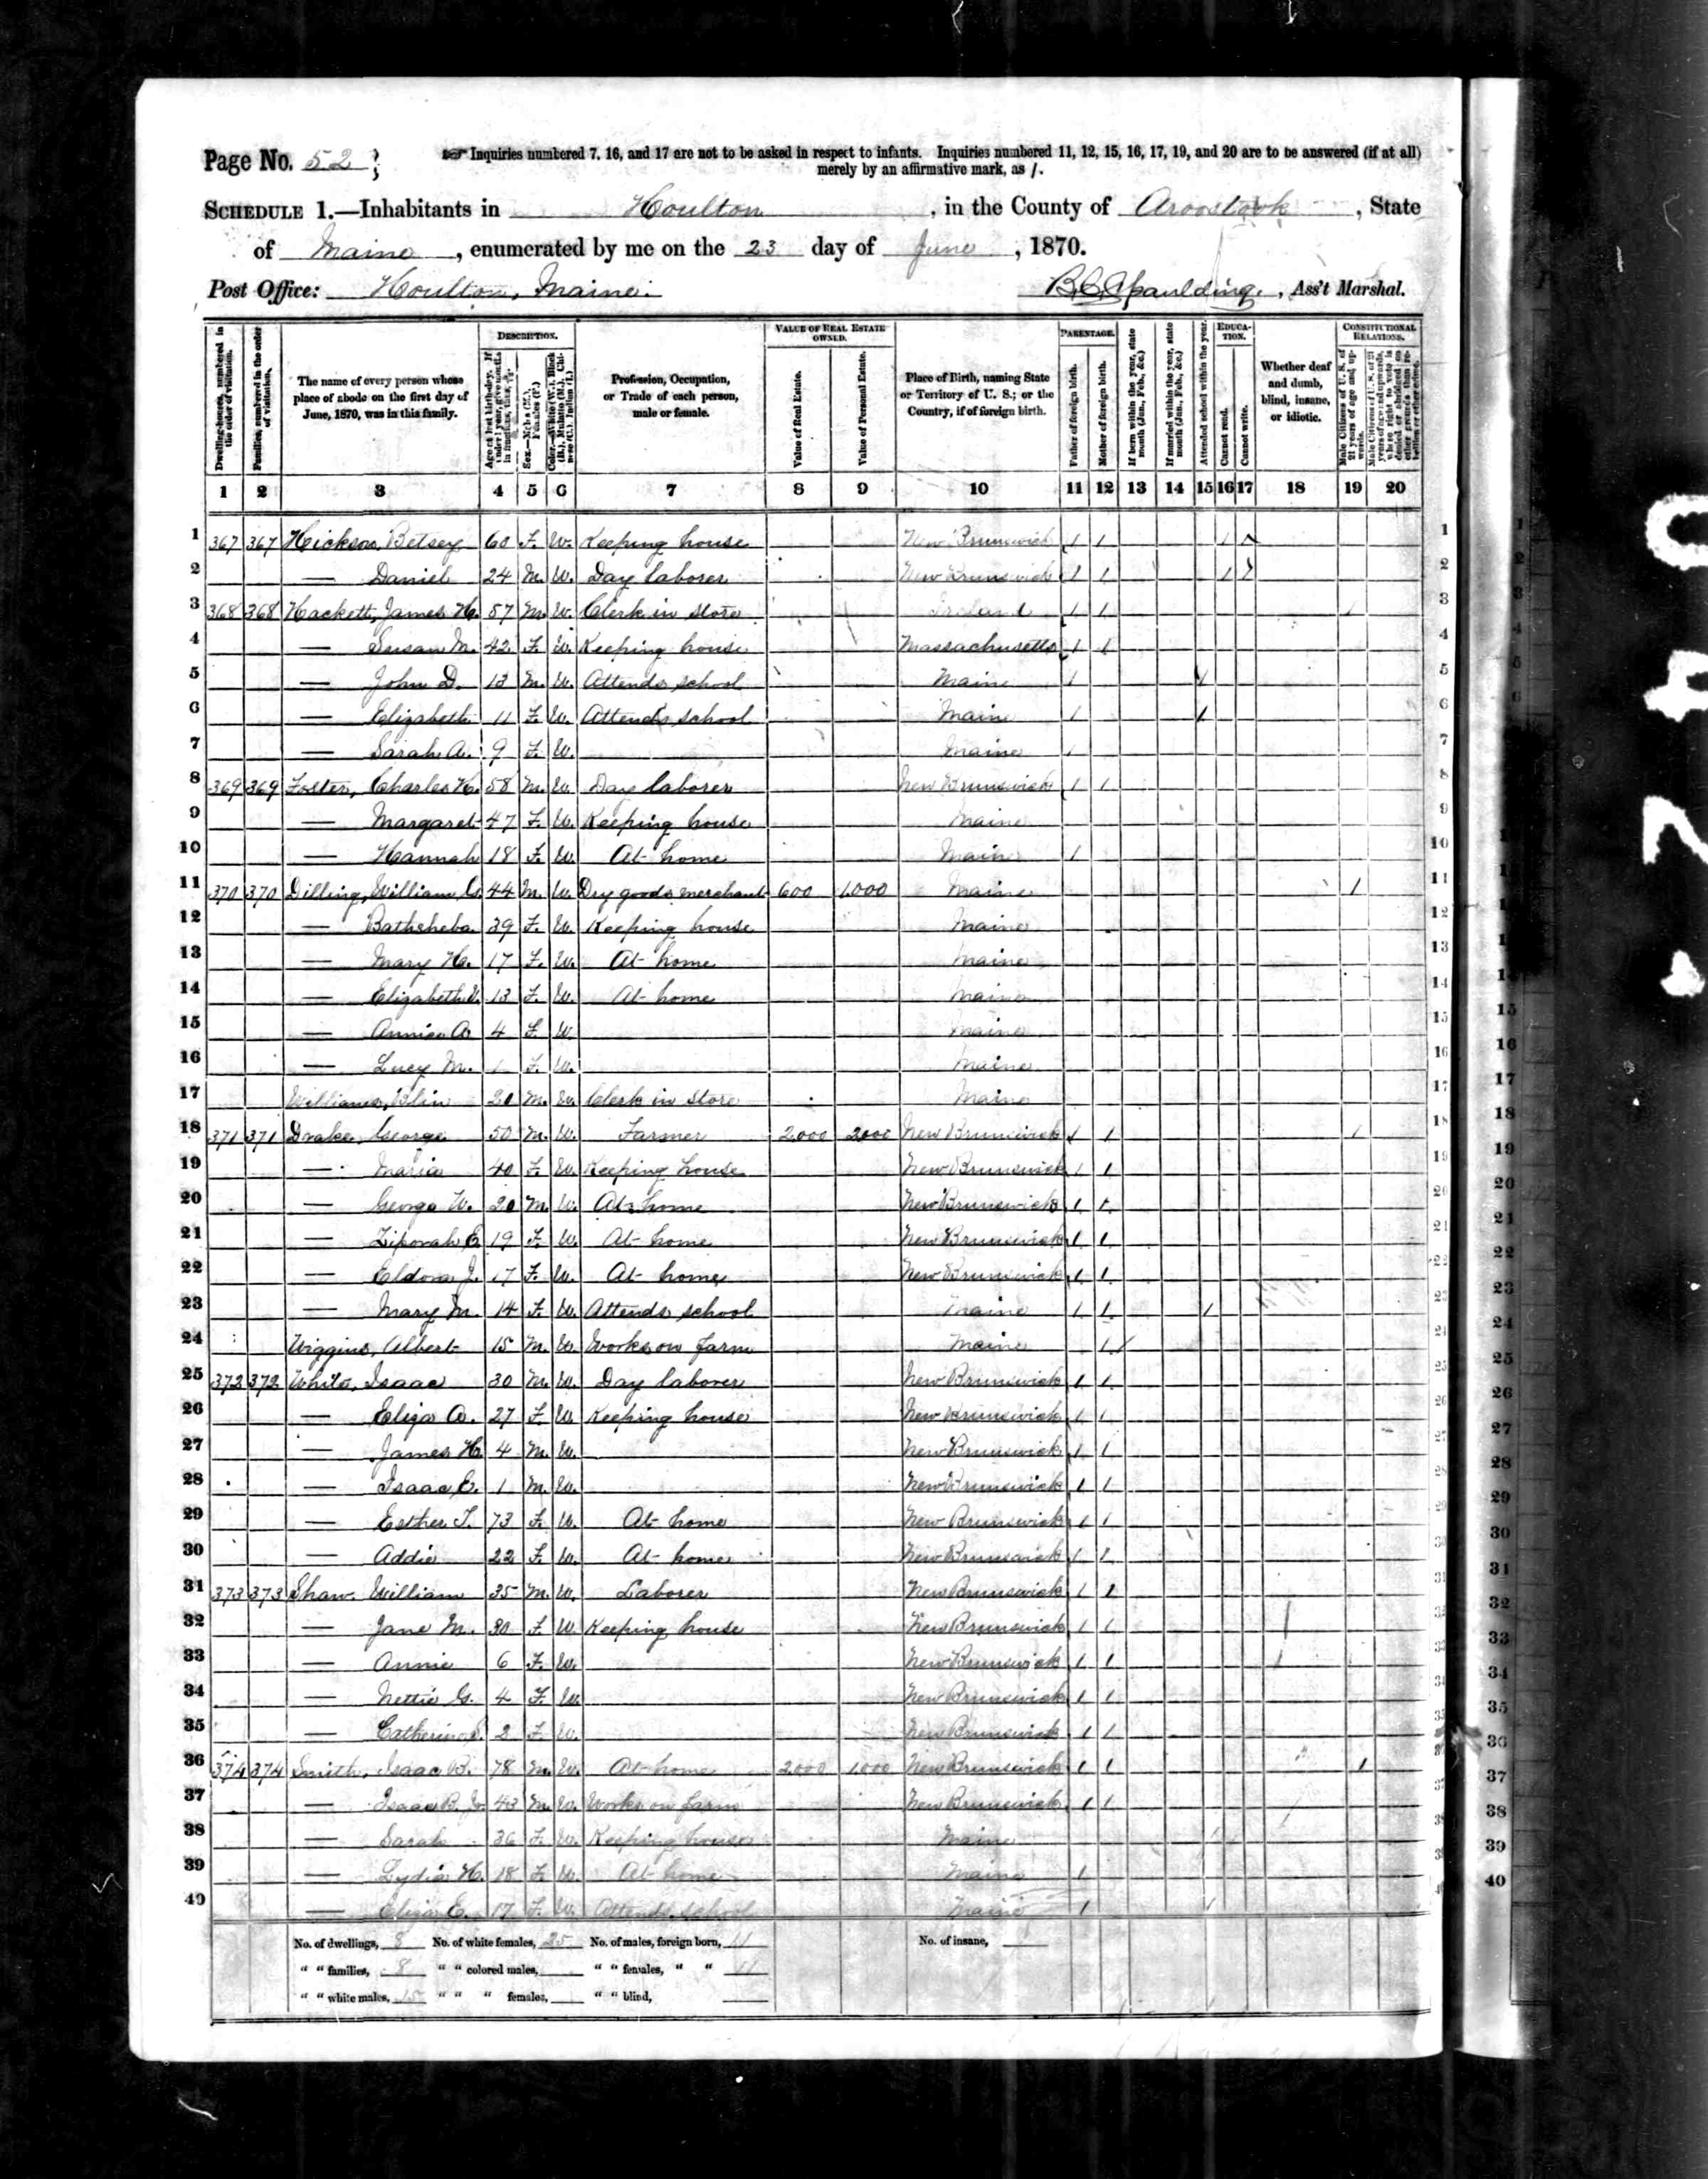 Page No. 52
Inquiries numbered 7, 16, and 17 are not to be asked in respect to infants. Inquiries numbered 11, 12, 15, 16, 17, 19, and 20 are to be answered (if at all)
merely by an affirmative mark, as /.
SCHEDULE 1.—Inhabitants in Houlton, in the County of Aroostook, State
of Maine, enumerated by me on the 23 day of June, 1870.
Post Office: Houlton, Maine. B. C. Spaulding, Ass't Marshal.
DESCRIPTION. VALUE OF REAL ESTATE OWNED. PARENTAGE. EDUCATION. CONSTITUTIONAL RELATIONS.
Dwelling-houses, numbered in the order of visitation. Families, numbered in the order of visitation. The name of every person whose place of abode on the first day of June, 1870, was in this family. Profession, Occupation, or Trade of each person, male or female. Value of Real Estate. Value of Personal Estate. Place of Birth, naming State or Territory of U. S.; or the Country, if of foreign birth. Father of foreign birth. Mother of foreign birth. If born within the year, state month (Jan., Feb., &c.) If married within the year, state month (Jan., Feb., &c.) Attended school within the year. Cannot read. Cannot write. Whether deaf and dumb, blind, insane, or idiotic.
1 2 3 4 5 6 7 8 9 10 11 12 13 14 15 16 17 18 19 20
1 367 367 Hickson, Betsey 60 F. W. Keeping house New Brunswick / / / / 1
2 — Daniel 24 M. W. Day laborer New Brunswick / / / / 2
3 368 368 Hackett, James H. 57 M. W. Clerk in store Ireland / / / 3
4 — Susan M. 42 F. W. Keeping house Massachusetts / / 4
5 — John D. 13 M. W. Attends school Maine / / 5
6 — Elizabeth 11 F. W. Attends school Maine / / 6
7 — Sarah A. 9 F. W. Maine / 7
8 369 369 Foster, Charles H. 58 M. W. Day laborer New Brunswick / / 8
9 — Margaret 47 F. W. Keeping house Maine 9
10 — Hannah 18 F. W. At home Maine / 10
11 370 370 Dilling, William G. 44 M. W. Dry goods merchant 600 1,000 Maine / 11
12 — Bathsheba 39 F. W. Keeping house Maine 12
13 — Mary H. 17 F. W. At home Maine 13
14 — Elizabeth 13 F. W. At home Maine 14
15 — Annie A. 4 F. W. Maine 15
16 — Lucy M. 1 F. W. Maine 16
17 Williams, 20 M. W. Clerk in store Maine 17
18 371 371 Drake, George 50 M. W. Farmer 2,000 2,000 New Brunswick / / / 18
19 — Maria 40 F. W. Keeping house New Brunswick / / 19
20 — George W. 20 M. W. At home New Brunswick / / 20
21 — Ziporah E. 19 F. W. At home New Brunswick / / 21
22 — Eldora J. 17 F. W. At home New Brunswick / / 22
23 — Mary M. 14 F. W. Attends school Maine / / / 23
24 Wiggins, Albert 15 M. W. Works on farm Maine / 24
25 372 372 White, Isaac 30 M. W. Day laborer New Brunswick / / 25
26 — Eliza A. 27 F. W. Keeping house New Brunswick / / 26
27 — James H. 4 M. W. New Brunswick / / 27
28 — Isaac E. 1 M. W. New Brunswick / / 28
29 — Esther T. 73 F. W. At home New Brunswick / / 29
30 — Addie 22 F. W. At home New Brunswick / / 30
31 373 373 Shaw, William 35 M. W. Laborer New Brunswick / / 31
32 — Jane M. 30 F. W. Keeping house New Brunswick / /
33 — Annie 6 F. W. New Brunswick / /
34 — Nettie G. 4 F. W. New Brunswick / /
35 — Catherine 2 F. W. New Brunswick / /
36 374 374 Smith, Isaac B. 78 M. W. At home 2,000 1,000 New Brunswick / / /
37 — Isaac B. Jr. 43 M. W. Works on farm New Brunswick / /
38 — Sarah 36 F. W. Keeping house Maine
39 — Lydia H. 18 F. W. At home Maine /
40 — Eliza E. 17 F. W. Attends school Maine / /
No. of dwellings, 8 No. of white females, 25 No. of males, foreign born, 11 No. of insane,
" " families, 8 " " colored males, " " females, " " 11
" " white males, 15 " " " females, " " blind,